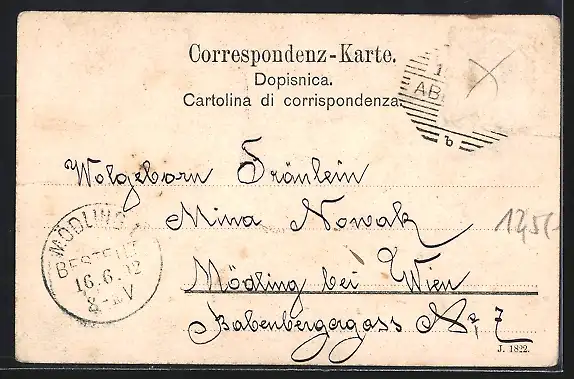 Correspondenz-Karte.
Dopisnica.
Cartolina di corrispondenza.
AB
b
Wolgeborn Fräulein
Mina Nowak
Mödling bei Wien
Babenbergergass No 7
MÖDLING 1
BESTELLT
16.6.12
8- V
12,5
J. 1822.